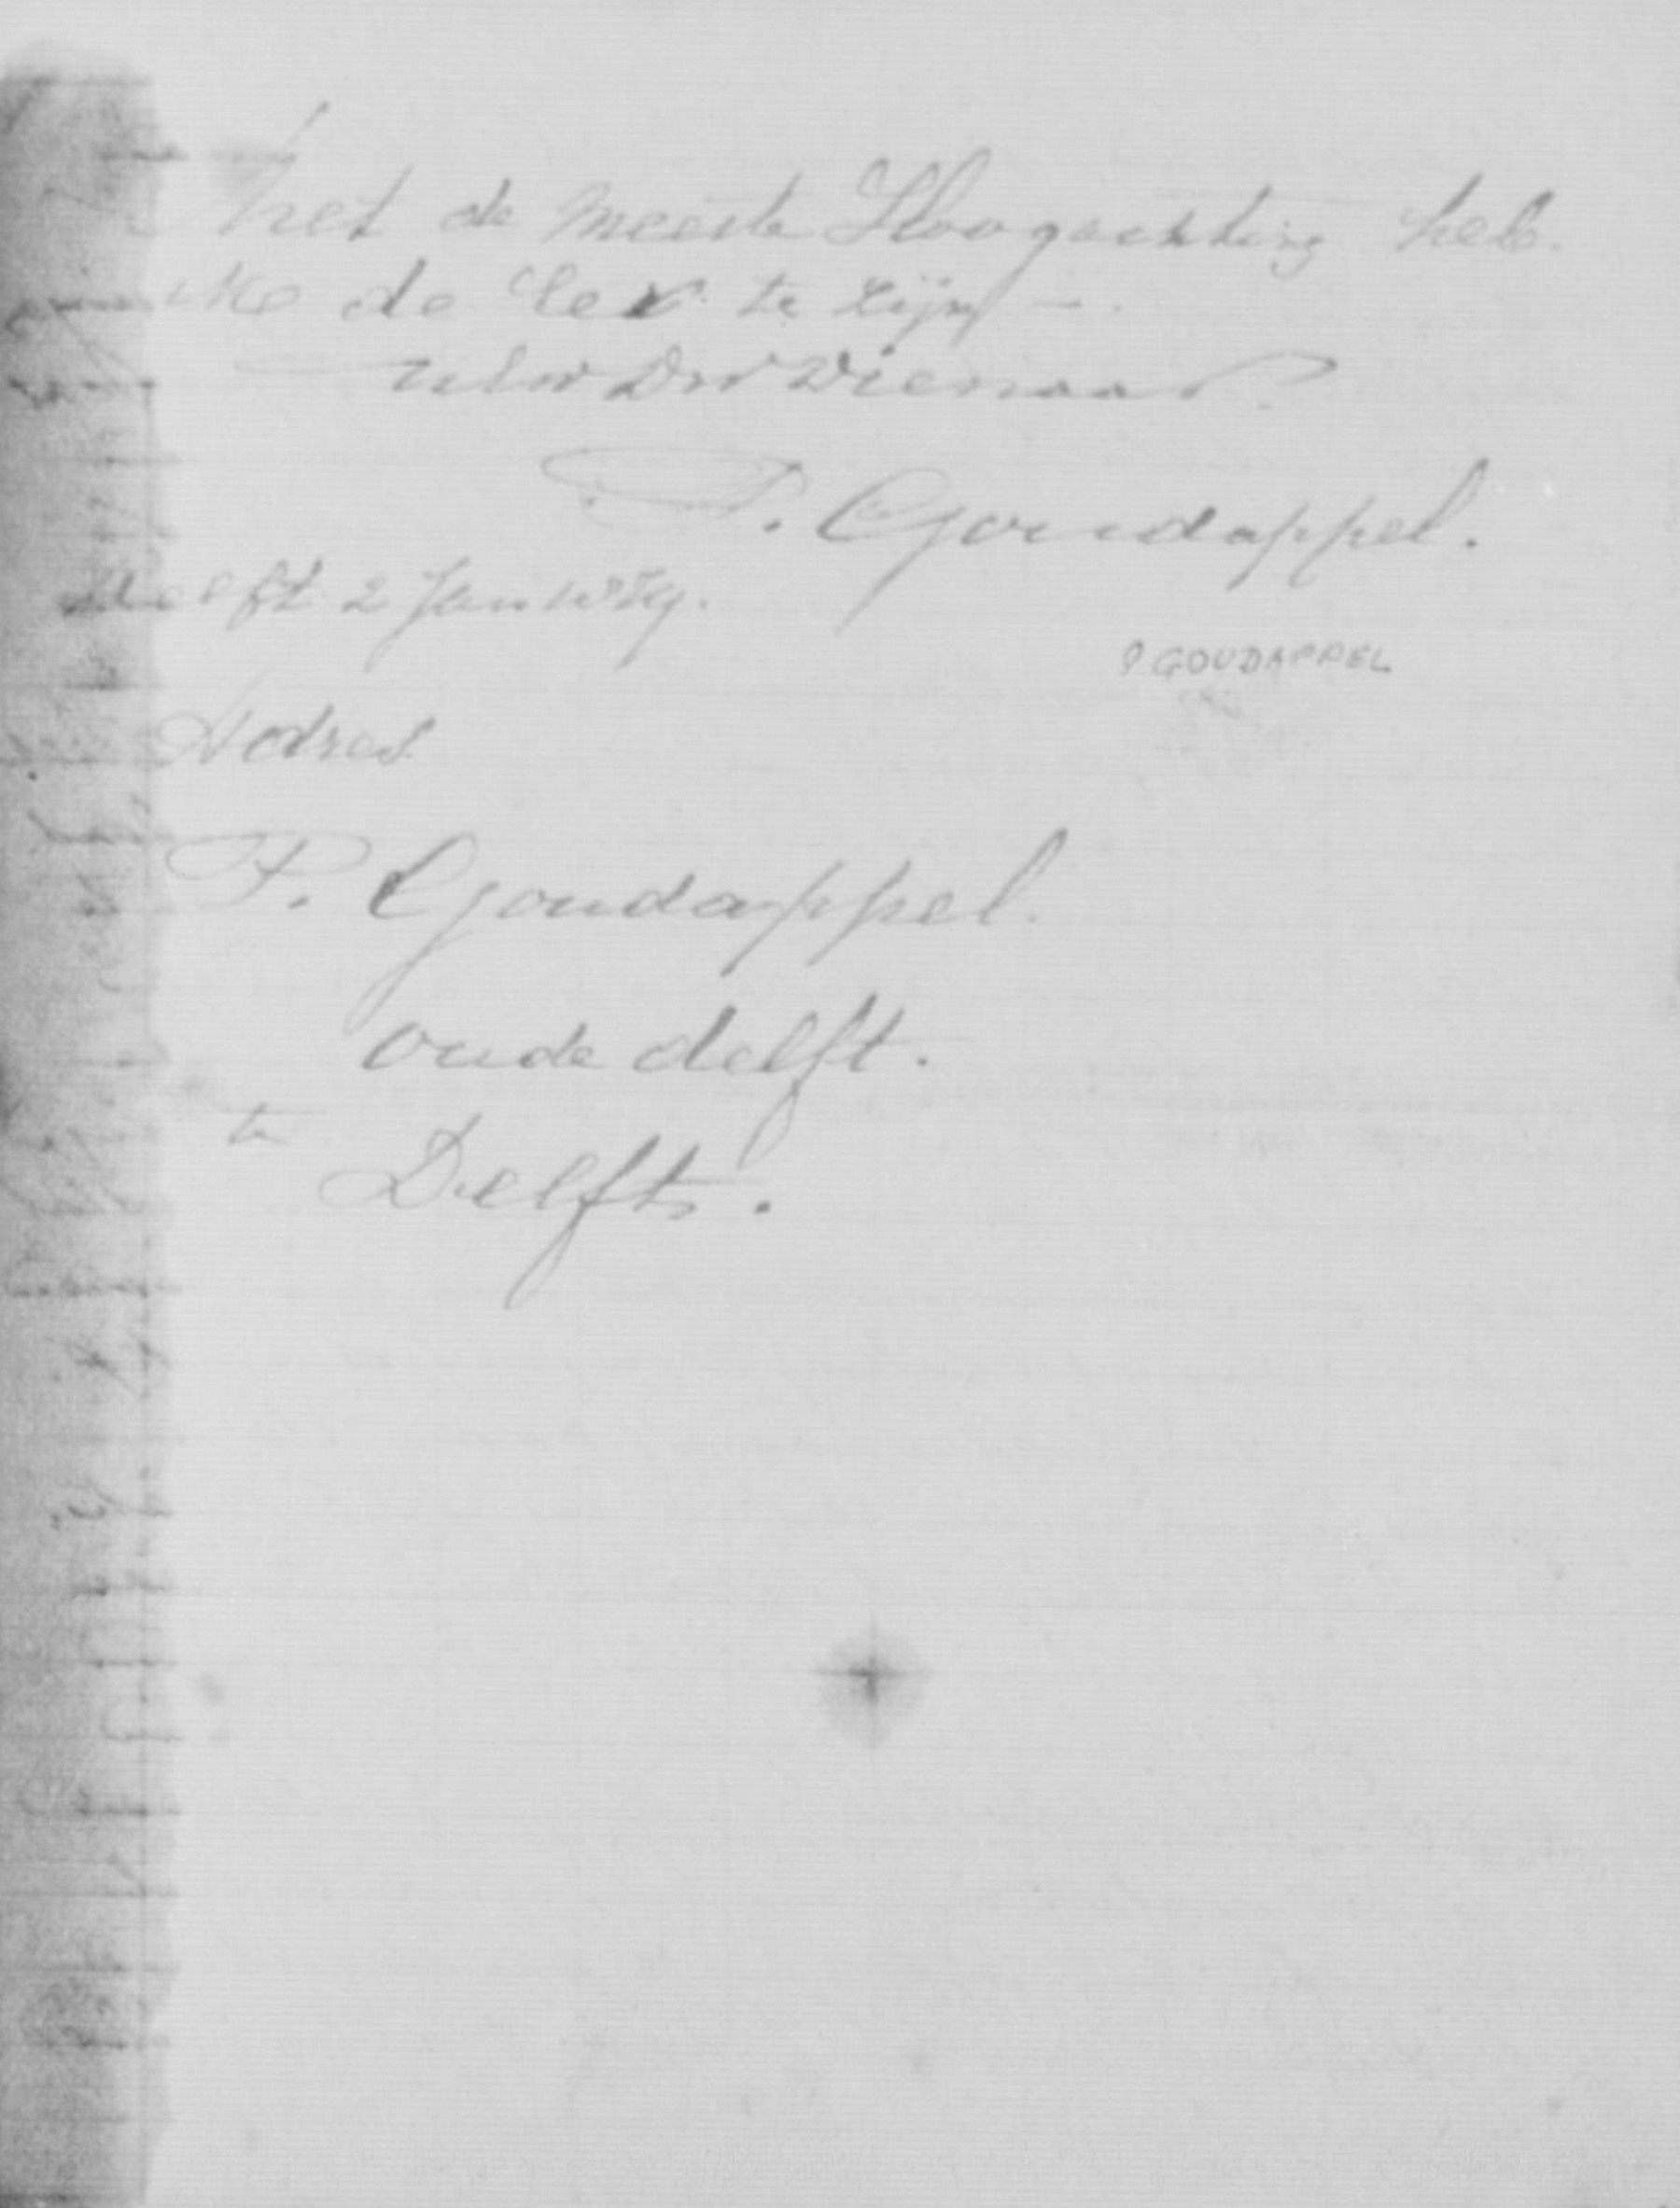 met de meeste Hoogachting heb
ike de Eer te zijn –.
UEw Dw Dienaar
P. Goudappel.
Delft 2 Jan
P GOUDAPPEL
Adres
P. Goudappel.
oude delft.
te
Delft.